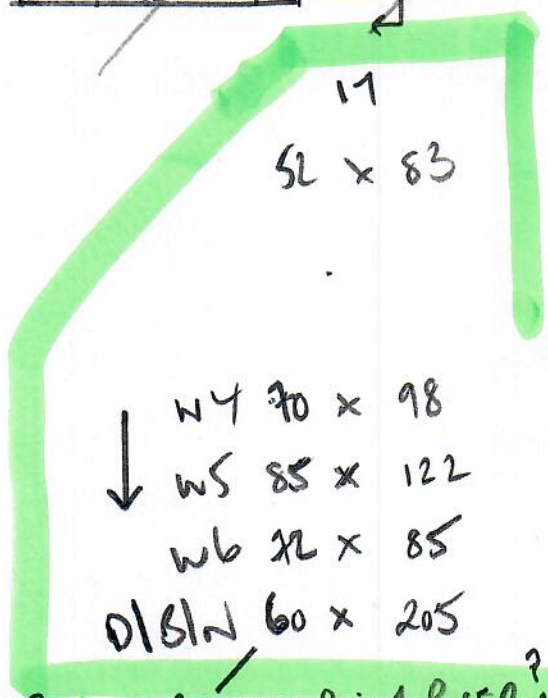 17
52 x 83
W4 70 x 98
W5 85 x 122
W6 72 x 85
D/B/N 60 x 205
?